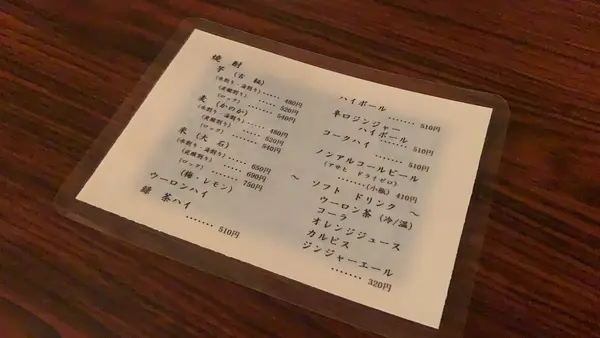 焼 酎
芋 (古 秘)
(水割り・湯割り)‥‥‥ 480円
(炭酸割り)‥‥‥ 520円
(ロック)‥‥‥ 540円
麦 (かのか)
(水割り・湯割り)‥‥‥ 480円
(炭酸割り)‥‥‥ 520円
(ロック)‥‥‥ 540円
米 (大 石)
(水割り・湯割り)‥‥‥ 650円
(炭酸割り)‥‥‥ 690円
(ロック)‥‥‥ 750円
(梅・レモン)
ウーロンハイ
緑 茶ハイ
‥‥‥‥ 510円
ハイボール
‥‥‥‥ 510円
辛口ジンジャー
ハイボール
‥‥‥‥ 510円
コークハイ
‥‥‥‥ 510円
ノンアルコールビール
(アサヒ ドライゼロ)
‥‥‥(小瓶) 410円
～ ソフト ドリンク ～
ウーロン茶 (冷/温)
コーラ
オレンジジュース
カルピス
ジンジャーエール
‥‥‥‥ 320円